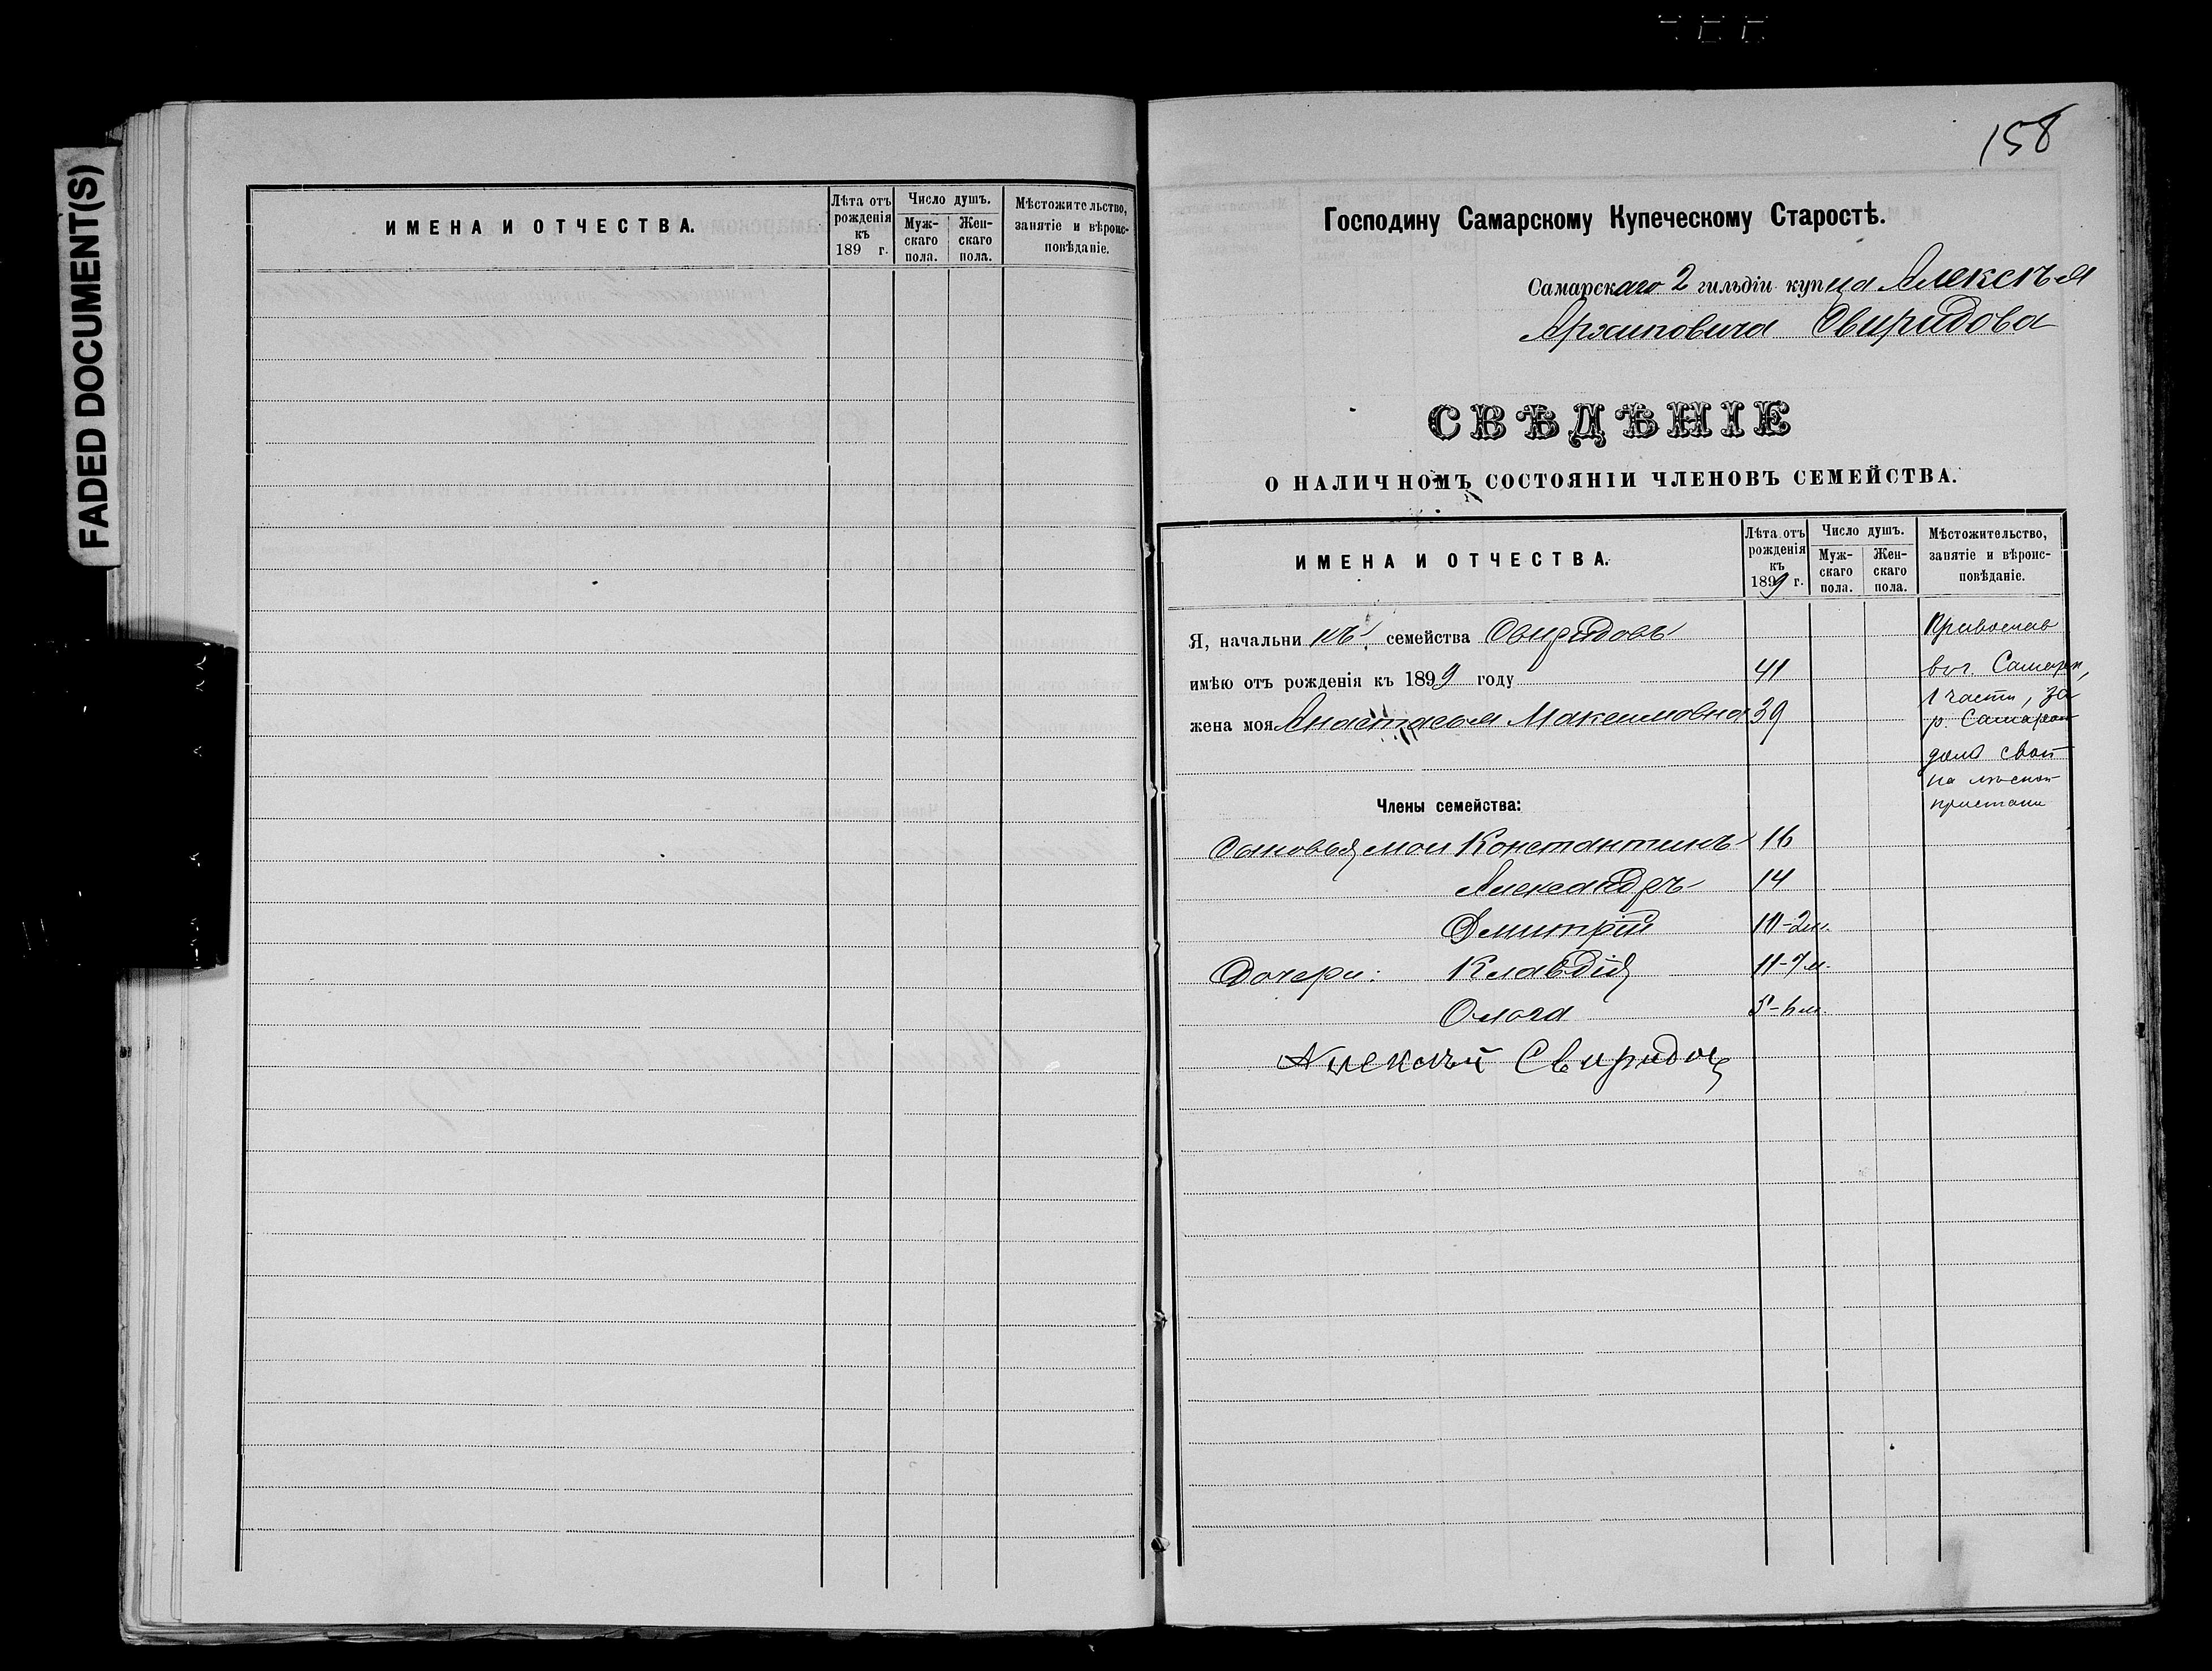 FADED DOCUMENT(S)
ИМЕНА И ОТЧЕСТВА.
Лѣта отъ рожденія къ 189 г.
Число душъ.
Мужскаго пола.
Женскаго пола.
Мѣстожительство, занятіе и вѣроисповѣданіе.
158
Господину Самарскому Купеческому Старостѣ.
Самарскаго 2 гильдіи купца Алексѣя
Архиповича Свиридова
СВѢДѢНІЕ
О НАЛИЧНОМЪ СОСТОЯНІИ ЧЛЕНОВЪ СЕМЕЙСТВА.
ИМЕНА И ОТЧЕСТВА.
Лѣта отъ рожденія къ 1899 г.
Число душъ.
Муж-
скаго
пола.
Жен-
скаго
пола.
Мѣстожительство,
занятіе и вѣроис-
повѣданіе.
Я, начальникъ, семейства Свиридовъ
Православ
имѣю отъ рожденія къ 1899 году 41
в г. Самарѣ,
1 части, за
жена моя Анастасья Максимовна 39
р. Самарой
домъ свой
на лѣсной
пристани
Члены семейства:
Сыновья мои Константинъ 16
Александръ 14
Дмитрій 10-2м.
Дочери: Клавдія 11-7м.
Ольга 5-6м.
Алексѣй Свиридов